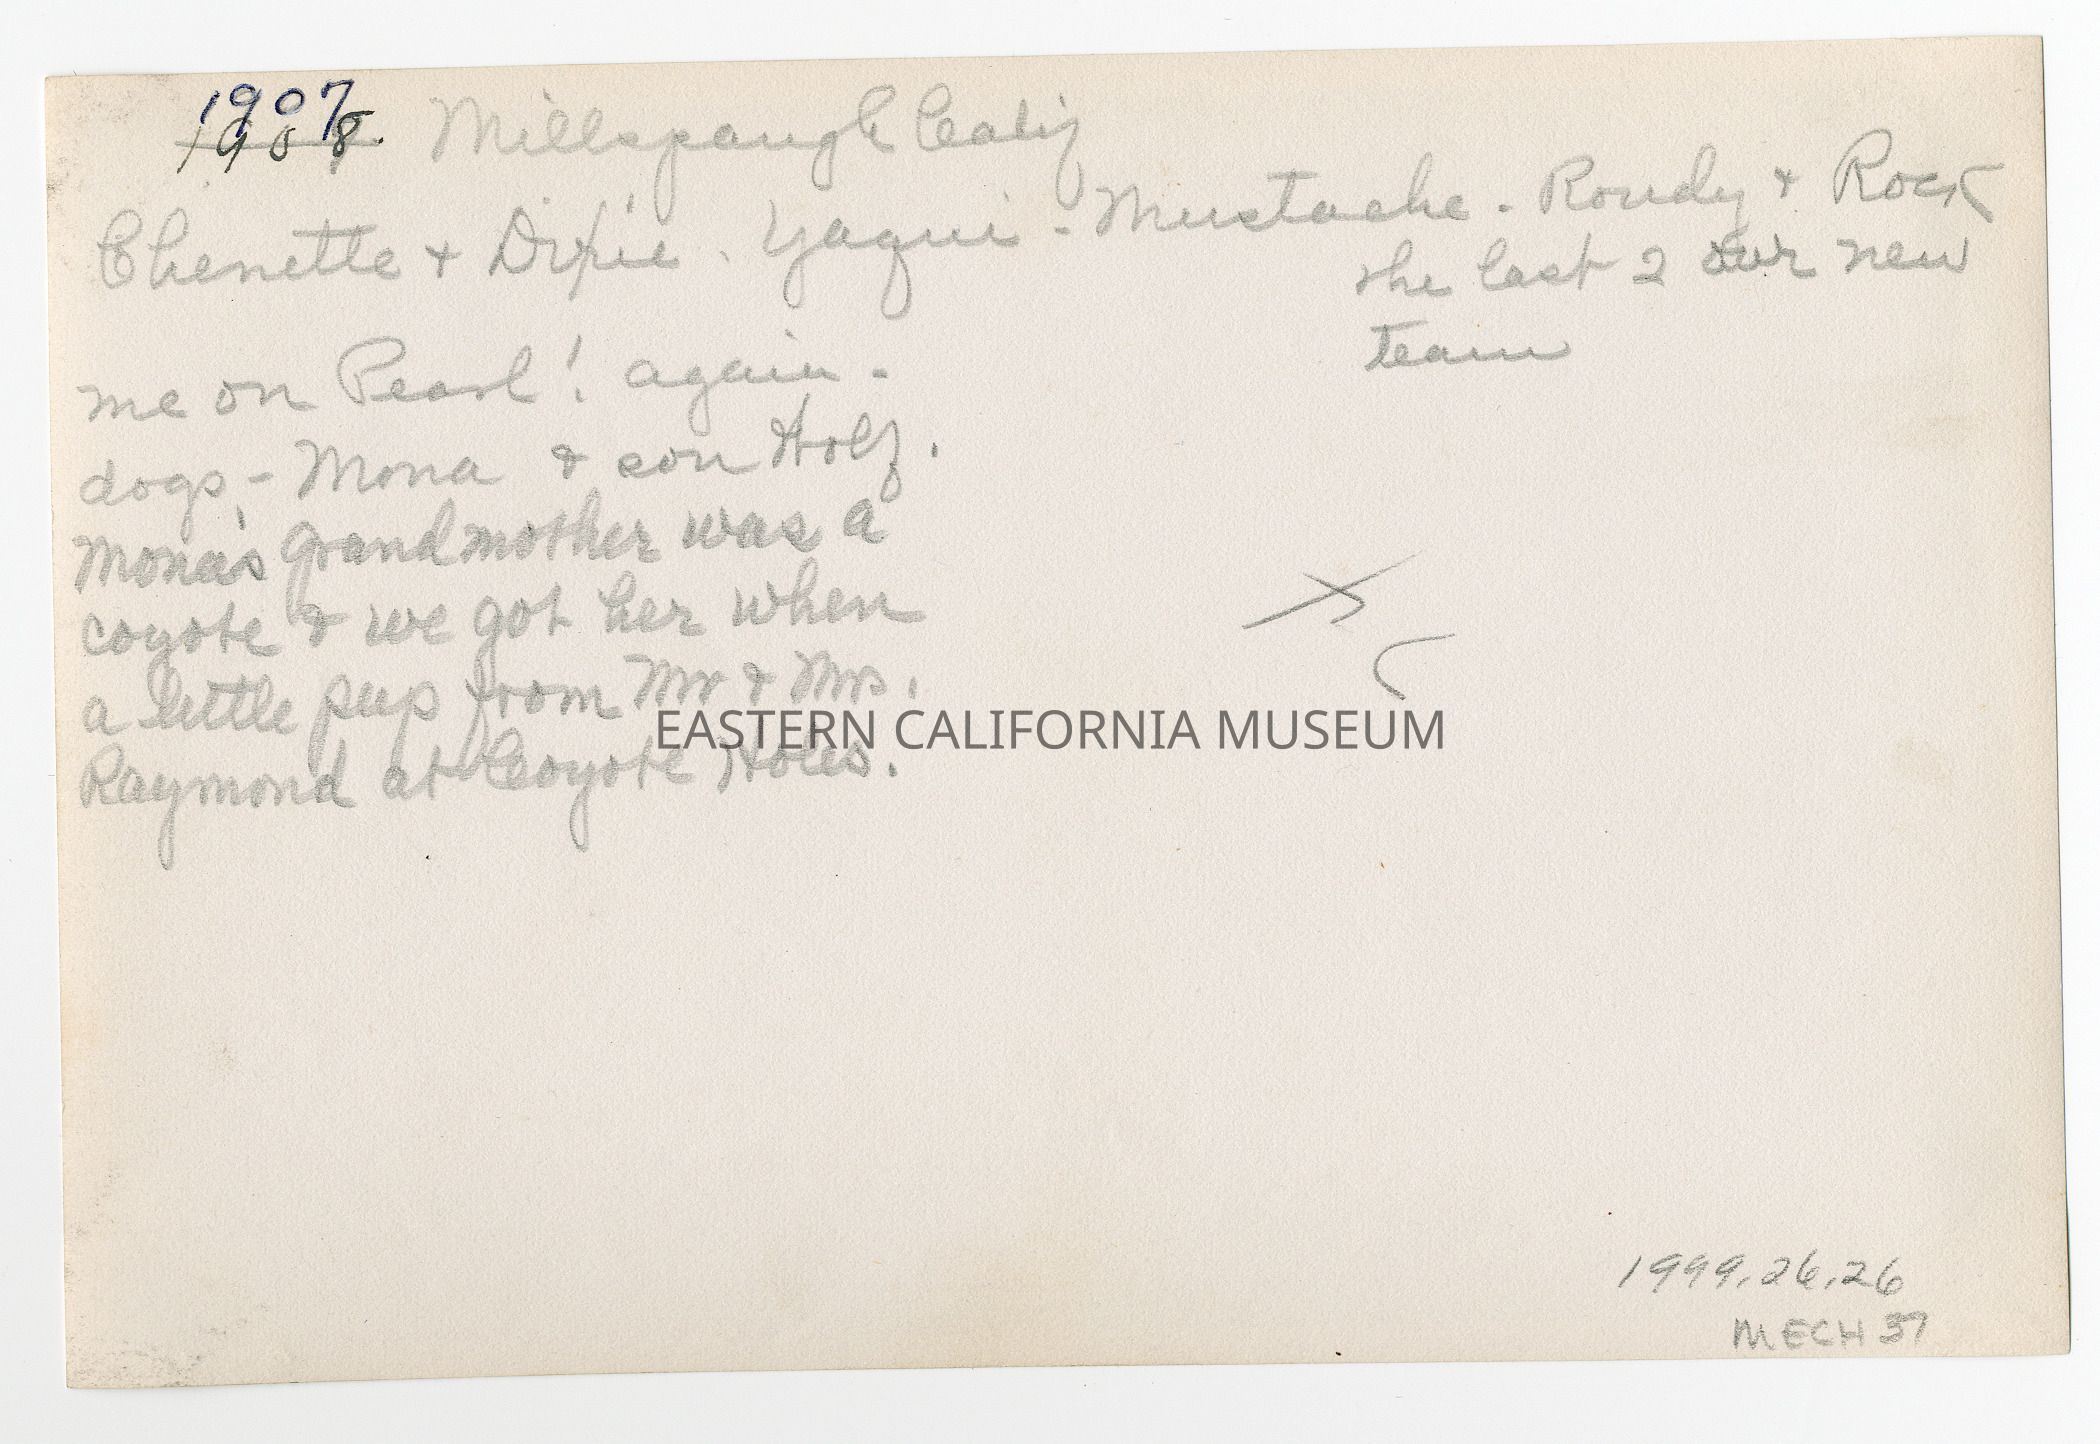 1907
1908. Millspaugh Calif
Chenette + Dixie. Yaqui - Mustache. Roudy + Rock
the last 2 our new
team
me on Pearl! again -
dogs, - Mona & son Holf.
Mona's grandmother was a
coyote & we got her when
a little pup from Mr & Mrs.
Raymond at Coyote Holes.
EASTERN CALIFORNIA MUSEUM
1999.26.26
MECH 37